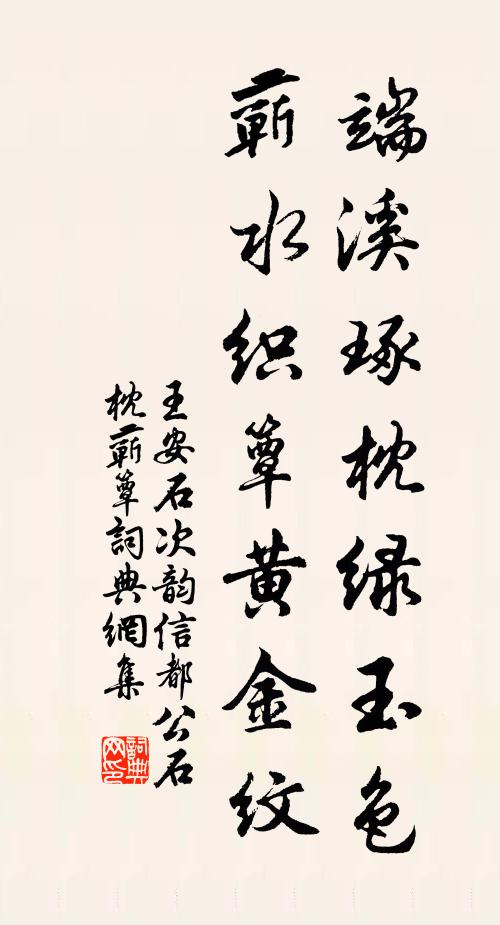 端溪琢枕绿玉色
蕲水织簟黄金纹
王安石次韵信都公石
枕蕲簟詞典網集
詞典
网印